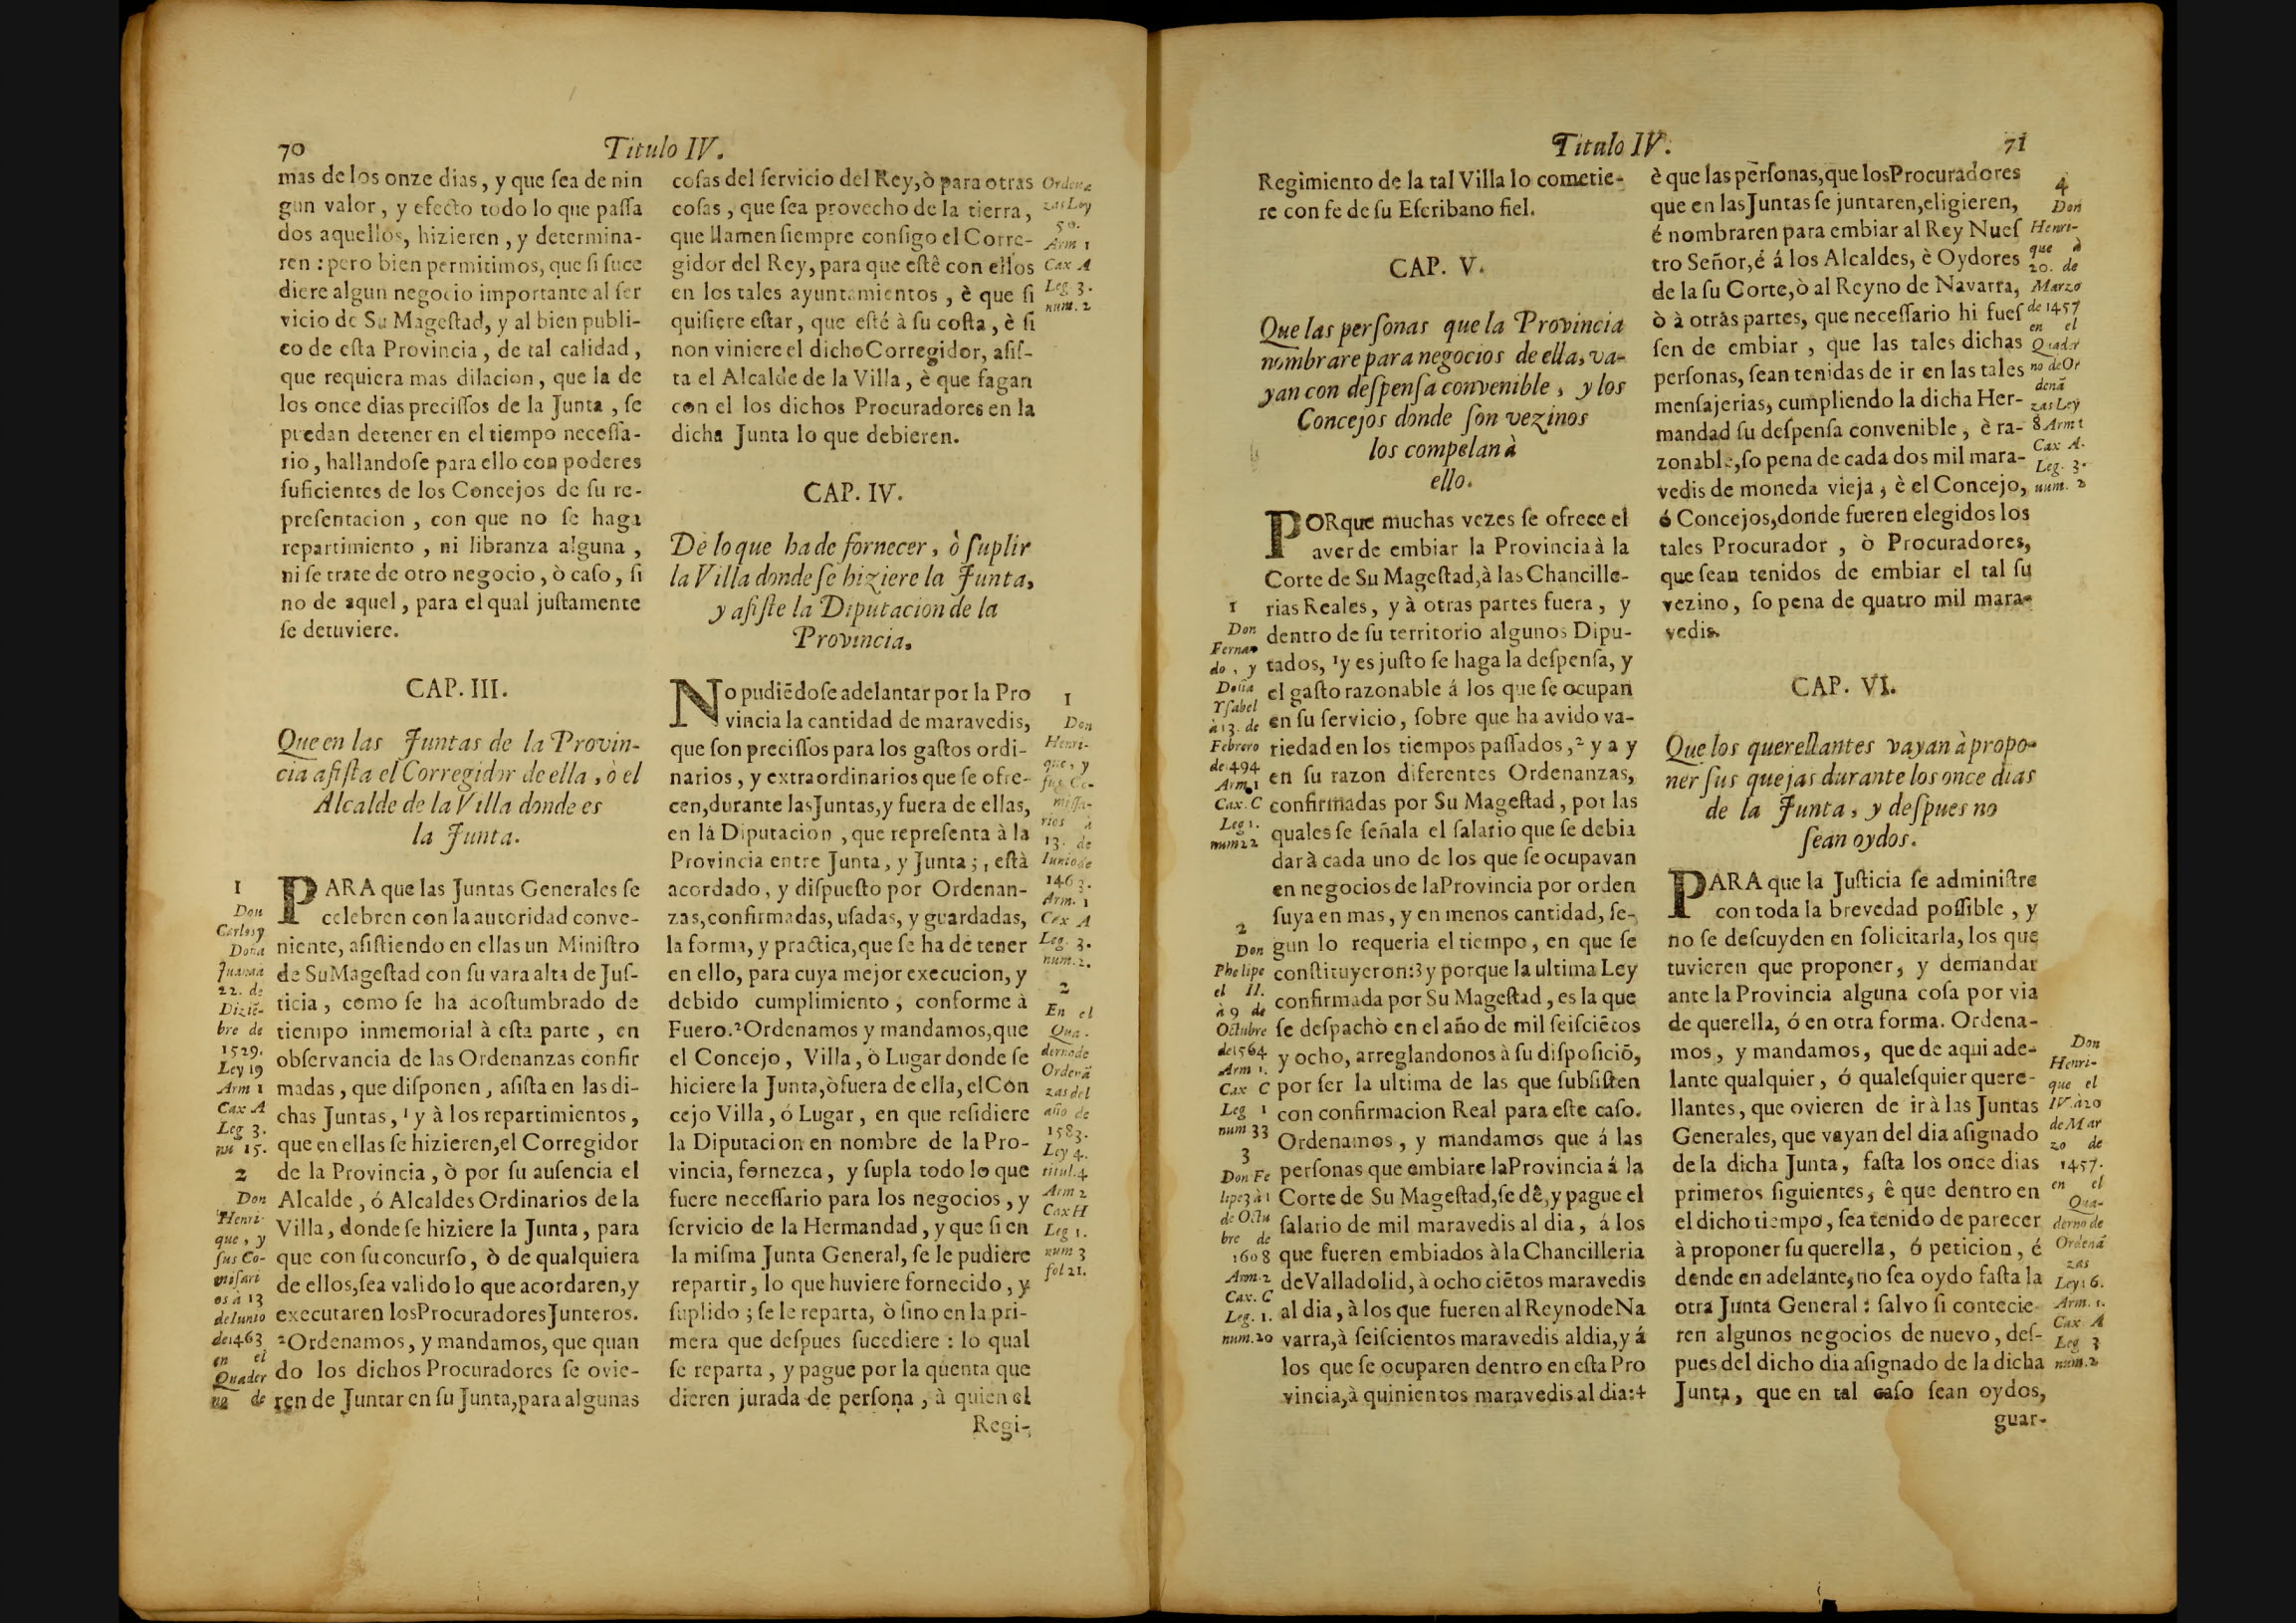 70
Titulo IV.
mas de los onze dias, y que ſea de nin
gun valor, y efecto todo lo que paſſa
dos aquellos, hizieren, y determina-
ren : pero bien permitimos, que ſi ſuce
diere algun negocio importante al ſer
vicio de Su Mageſtad, y al bien publi-
co de eſta Provincia, de tal calidad,
que requiera mas dilacion, que la de
los once dias preciſſos de la Junta, ſe
puedan detener en el tiempo neceſſa-
rio, hallandoſe para ello con poderes
ſuficientes de los Concejos de ſu re-
preſentacion, con que no ſe haga
repartimiento, ni libranza alguna,
ni ſe trate de otro negocio, ò caſo, ſi
no de aquel, para el qual juſtamente
ſe detuviere.
CAP. III.
Que en las Juntas de la Provin-
cia aſiſta el Corregidor de ella, ò el
Alcalde de la Villa donde es
la Junta.
PARA que las Juntas Generales ſe
celebren con la autoridad conve-
niente, aſiſtiendo en ellas un Miniſtro
de Su Mageſtad con ſu vara alta de Juſ-
ticia, como ſe ha acoſtumbrado de
tiempo inmemorial à eſta parte, en
obſervancia de las Ordenanzas confir
madas, que diſponen, aſiſta en las di-
chas Juntas, 1 y à los repartimientos,
que en ellas ſe hizieren, el Corregidor
de la Provincia, ò por ſu auſencia el
Alcalde, ó Alcaldes Ordinarios de la
Villa, donde ſe hiziere la Junta, para
que con ſu concurſo, ò de qualquiera
de ellos, ſea valido lo que acordaren, y
executaren los Procuradores Junteros.
2 Ordenamos, y mandamos, que quan
do los dichos Procuradores ſe ovie-
ren de Juntar en ſu Junta, para algunas
1
Don
Carlos y
Doña
Juana à
22. de
Dizië-
bre de
1529.
Ley 19
Arm 1
Cax A
Leg 3.
nu 15.
2
Don
Henri-
que, y
ſus Co-
miſari
os à 13
de Iunio
de 1463
en el
Quader
no de
coſas del ſervicio del Rey, ò para otras
coſas, que ſea provecho de la tierra,
que llamen ſiempre conſigo el Corre-
gidor del Rey, para que eſtê con ellos
en los tales ayuntamientos, è que ſi
quiſiere eſtar, que eſté à ſu coſta, è ſi
non viniere el dicho Corregidor, aſiſ-
ta el Alcalde de la Villa, è que fagan
con el los dichos Procuradores en la
dicha Junta lo que debieren.
Ordena
zas Ley
50.
Arm 1
Cax A
Leg. 3.
num. 2
CAP. IV.
De lo que ha de fornecer, ò ſuplir
la Villa donde ſe hiziere la Junta,
y aſiſte la Diputacion de la
Provincia.
No pudiēdoſe adelantar por la Pro
vincia la cantidad de maravedis,
que ſon preciſſos para los gaſtos ordi-
narios, y extraordinarios que ſe ofre-
cen, durante las Juntas, y fuera de ellas,
en lá Diputacion, que repreſenta à la
Provincia entre Junta, y Junta ; , eſtà
acordado, y diſpueſto por Ordenan-
zas, confirmadas, uſadas, y guardadas,
la forma, y practica, que ſe ha de tener
en ello, para cuya mejor execucion, y
debido cumplimiento, conforme à
Fuero. 2 Ordenamos y mandamos, que
el Concejo, Villa, ò Lugar donde ſe
hiciere la Junta, ò fuera de ella, el Con
cejo Villa, ó Lugar, en que reſidiere
la Diputacion en nombre de la Pro-
vincia, fornezca, y ſupla todo lo que
fuere neceſſario para los negocios, y
ſervicio de la Hermandad, y que ſi en
la miſma Junta General, ſe le pudiere
repartir, lo que huviere fornecido, y
ſuplido ; ſe le reparta, ò ſino en la pri-
mera que deſpues ſucediere : lo qual
ſe reparta, y pague por la quenta que
dieren jurada de perſona, à quien el
Regi-
1
Don
Henri-
que, y
ſus Co-
miſſa-
rios à
13. de
Iunio de
1463.
Arm. 1
Cax A
Leg. 3.
num. 2.
2
En el
Qua-
derno de
Ordenā
zas del
año de
1583.
Ley 4.
titul. 4
Arm 2
Cax H
Leg 1.
num 3
fol 21.
Titulo IV.
71
Regimiento de la tal Villa lo cometie-
re con fe de ſu Eſcribano fiel.
CAP. V.
Que las perſonas que la Provincia
nombrare para negocios de ella, va-
yan con deſpenſa convenible, y los
Concejos donde ſon vezinos
los compelan à
ello.
PORque muchas vezes ſe ofrece el
aver de embiar la Provincia à la
Corte de Su Mageſtad, à las Chancille-
rias Reales, y à otras partes fuera, y
dentro de ſu territorio algunos Dipu-
tados, 1 y es juſto ſe haga la deſpenſa, y
el gaſto razonable á los que ſe ocupan
en ſu ſervicio, ſobre que ha avido va-
riedad en los tiempos paſſados, 2 y a y
en ſu razon diferentes Ordenanzas,
confirmadas por Su Mageſtad, por las
quales ſe ſeñala el ſalario que ſe debia
dar à cada uno de los que ſe ocupavan
en negocios de la Provincia por orden
ſuya en mas, y en menos cantidad, ſe-
gun lo requeria el tiempo, en que ſe
conſtituyeron: 3 y porque la ultima Ley
confirmada por Su Mageſtad, es la que
ſe deſpachò en el año de mil ſeiſciētos
y ocho, arreglandonos à ſu diſpoſiciō,
por ſer la ultima de las que ſubſiſten
con confirmacion Real para eſte caſo.
Ordenamos, y mandamos que á las
perſonas que embiare la Provincia á la
Corte de Su Mageſtad, ſe dê, y pague el
ſalario de mil maravedis al dia, á los
que fueren embiados à la Chancilleria
de Valladolid, à ocho ciētos maravedis
al dia, à los que fueren al Reyno de Na
varra, à ſeiſcientos maravedis al dia, y á
los que ſe ocuparen dentro en eſta Pro
vincia, à quinientos maravedis al dia: 4
1
Don
Fernan
do, y
Doña
Yſabel
à 13. de
Febrero
de 494
Arm. 1
Cax. C
Leg 1.
num 22
2
Don
Phelipe
el II.
à 9 de
Octubre
de 1564
Arm 1.
Cax C
Leg 1
num 33
3
Don Fe
lipe 3 à 1
de Octu
bre de
1608
Arm. 2
Cax. C
Leg. 1.
num. 20
è que las perſonas, que los Procuradores
que en las Juntas ſe juntaren, eligieren,
é nombraren para embiar al Rey Nueſ
tro Señor, é á los Alcaldes, è Oydores
de la ſu Corte, ò al Reyno de Navarra,
ò à otras partes, que neceſſario hi fueſ
ſen de embiar, que las tales dichas
perſonas, ſean tenidas de ir en las tales
menſajerias, cumpliendo la dicha Her-
mandad ſu deſpenſa convenible, è ra-
zonable, ſo pena de cada dos mil mara-
vedis de moneda vieja, è el Concejo,
ó Concejos, donde fueren elegidos los
tales Procurador, ò Procuradores,
que ſean tenidos de embiar el tal ſu
vezino, ſo pena de quatro mil mara-
vedis.
4
Don
Henri-
que à
20. de
Marzo
de 1457
en el
Quader
no de Or
denā
zas Ley
8 Arm 1
Cax A.
Leg. 3.
num. 2
CAP. VI.
Que los querellantes vayan à propo-
ner ſus quejas durante los once dias
de la Junta, y deſpues no
ſean oydos.
PARA que la Juſticia ſe adminiſtre
con toda la brevedad poſſible, y
no ſe deſcuyden en ſolicitarla, los que
tuvieren que proponer, y demandar
ante la Provincia alguna coſa por via
de querella, ó en otra forma. Ordena-
mos, y mandamos, que de aqui ade-
lante qualquier, ó qualeſquier quere-
llantes, que ovieren de ir à las Juntas
Generales, que vayan del dia aſignado
de la dicha Junta, faſta los once dias
primeros ſiguientes, ê que dentro en
el dicho tiempo, ſea tenido de parecer
à proponer ſu querella, ó peticion, é
dende en adelante, no ſea oydo faſta la
otra Junta General : ſalvo ſi contecie
ren algunos negocios de nuevo, deſ-
pues del dicho dia aſignado de la dicha
Junta, que en tal caſo ſean oydos,
guar-
Don
Henri-
que el
IV. à 20
de Mar
zo de
1457.
en el
Qua-
derno de
Ordenā
zas
Ley 6.
Arm. 1.
Cax A
Leg 3
num. 2